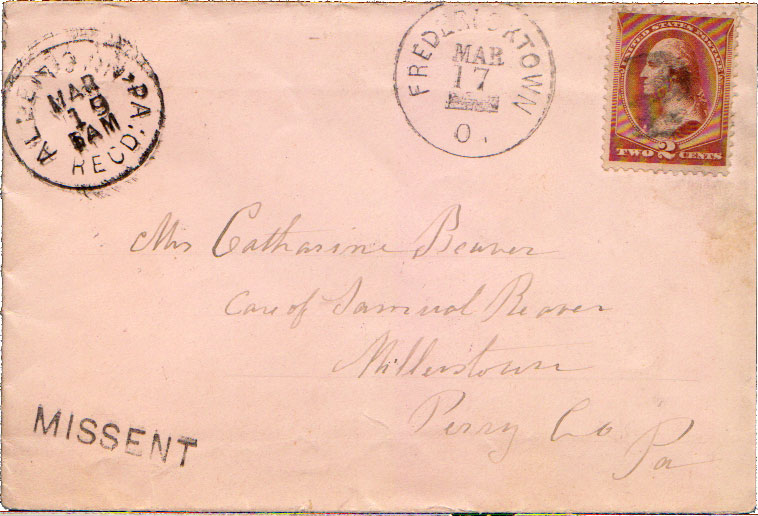 FREDERICKTOWN
MAR
17
O.
UNITED STATES POSTAGE
TWO 2 CENTS
MAR
19
5AM
RECD.
PA.
Mrs Catharine Beaver
Care of Samuel Beaver
Millerstown
Perry Co
Pa
MISSENT